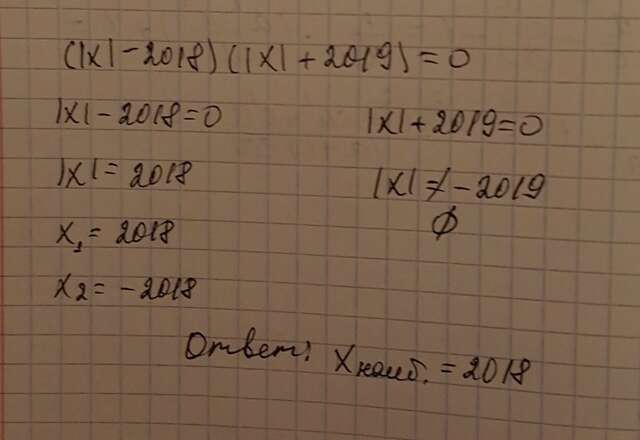 (|x| - 2018)(|x| + 2019) = 0
|x| - 2018 = 0 |x| + 2019 = 0
|x| = 2018 |x| ≠ -2019
∅
x₁ = 2018
x₂ = -2018
Ответ: xнаиб. = 2018